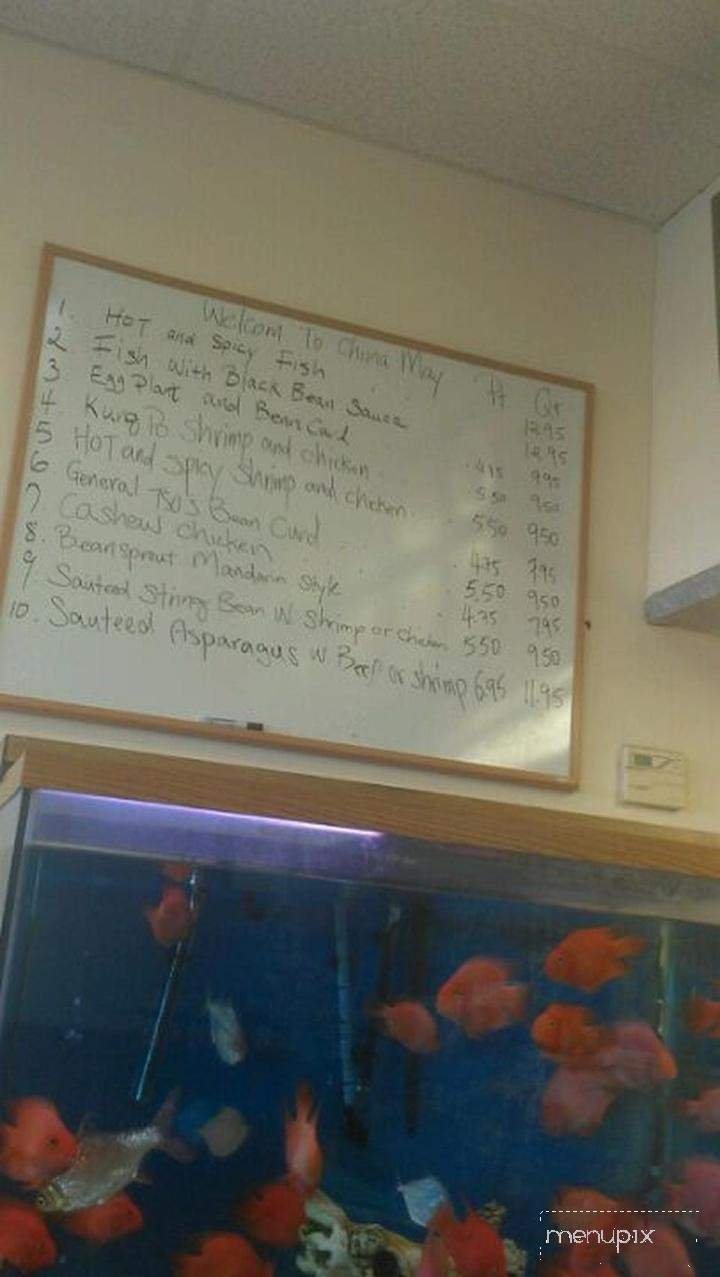 Welcom To China May
Pt Qr
1. HOT and Spicy Fish 12.95
2 Fish With Black Bean Sauce 12.95
3 Egg Plant and Bean Curd 4.75 7.95
4 Kung Po Shrimp and chicken 5.50 9.50
5 HOT and Spicy Shrimp and chicken 5.50 9.50
6 General TSO'S Bean Curd 4.75 7.95
7 Cashew chicken 5.50 9.50
8. Beansprout Mandarin Style 4.75 7.95
9 Sauteed String Bean W Shrimp or chicken 5.50 9.50
10. Sauteed Asparagus W Beef or shrimp 6.95 11.95
menupix